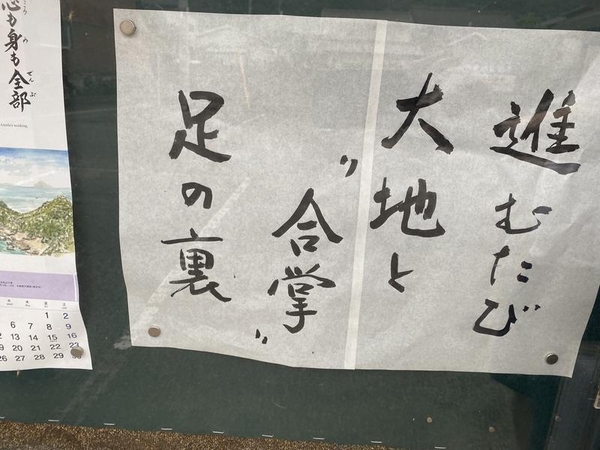 進むたび
大地と
〃合掌〃
足の裏
心も身も全部
ぜんぶ
1 2
6 7 8 9
12 13 14 15 16
19 20 21 22 23
26 27 28 29